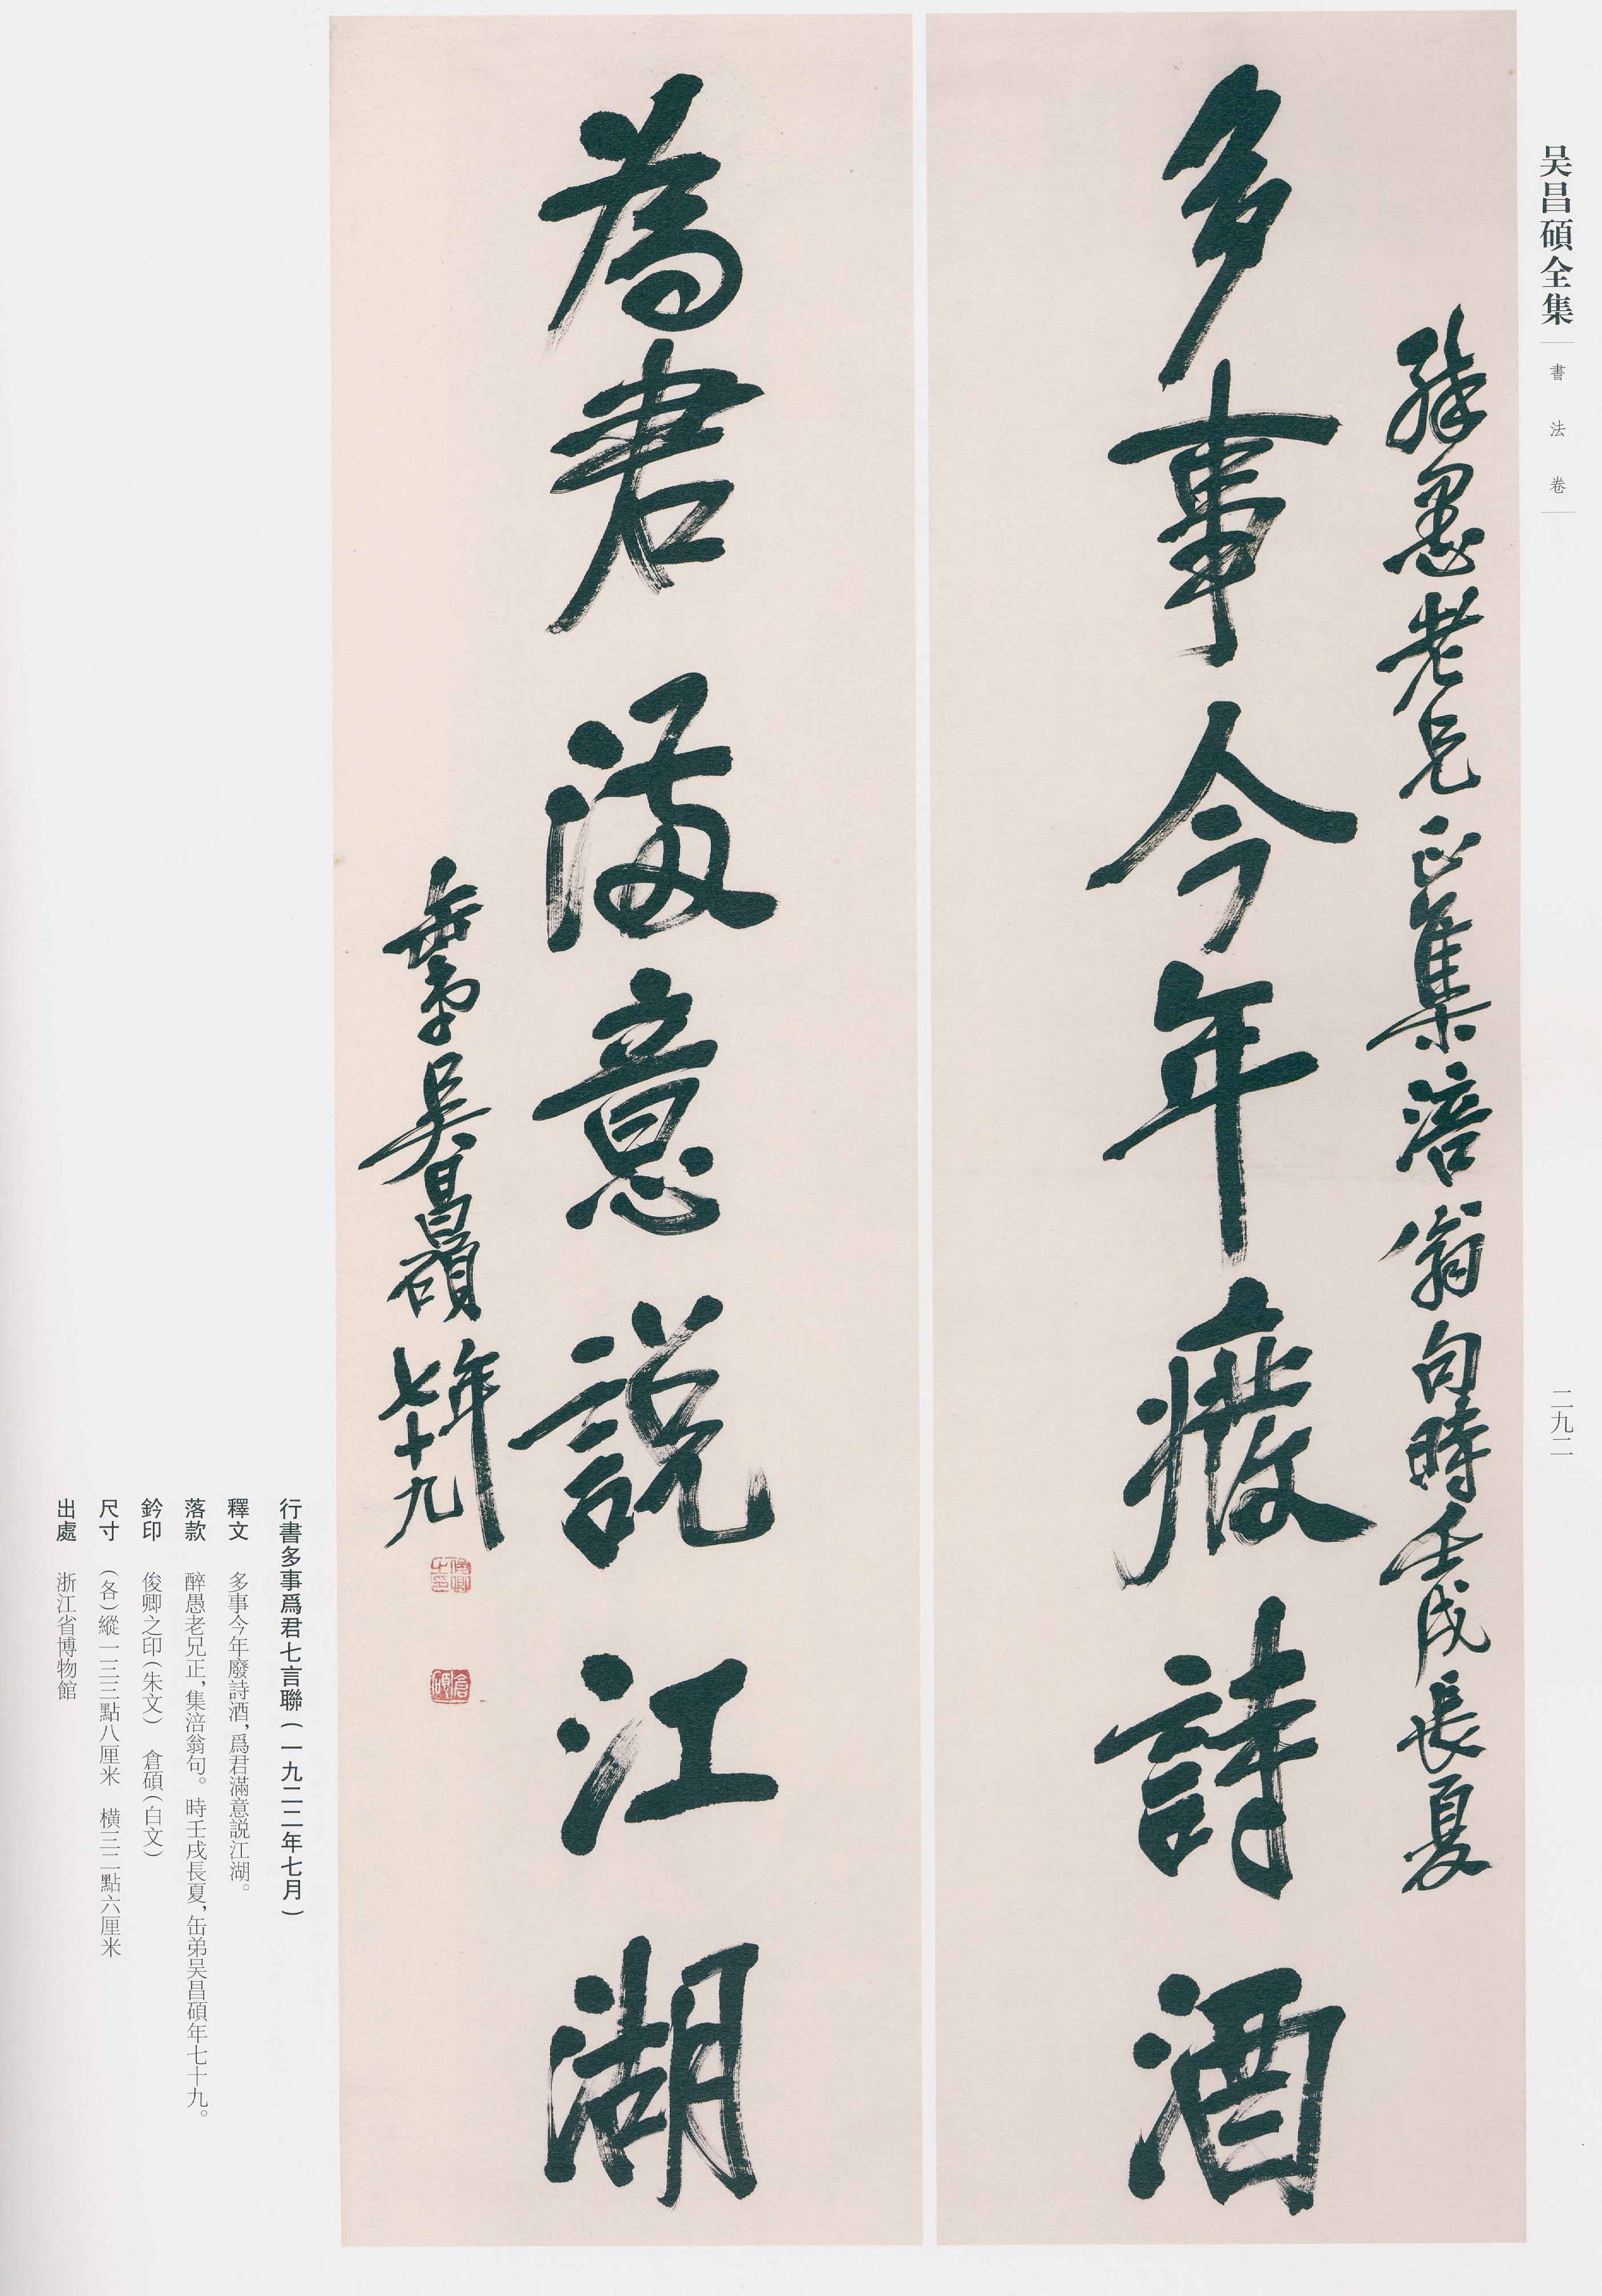 吴昌碩全集
書法卷
二九二
多事今年癈詩酒
醉愚老兄正集涪翁句時壬戌長夏
為君滿意説江湖
缶弟吴昌碩年七十九
俊卿之印
倉碩
行書多事爲君七言聯(一九二二年七月)
釋文 多事今年廢詩酒,爲君滿意説江湖。
落款 醉愚老兄正,集涪翁句。時壬戌長夏,缶弟吴昌碩年七十九。
鈐印 俊卿之印(朱文) 倉碩(白文)
尺寸 (各)縱一三三點八厘米 橫三二點六厘米
出處 浙江省博物館